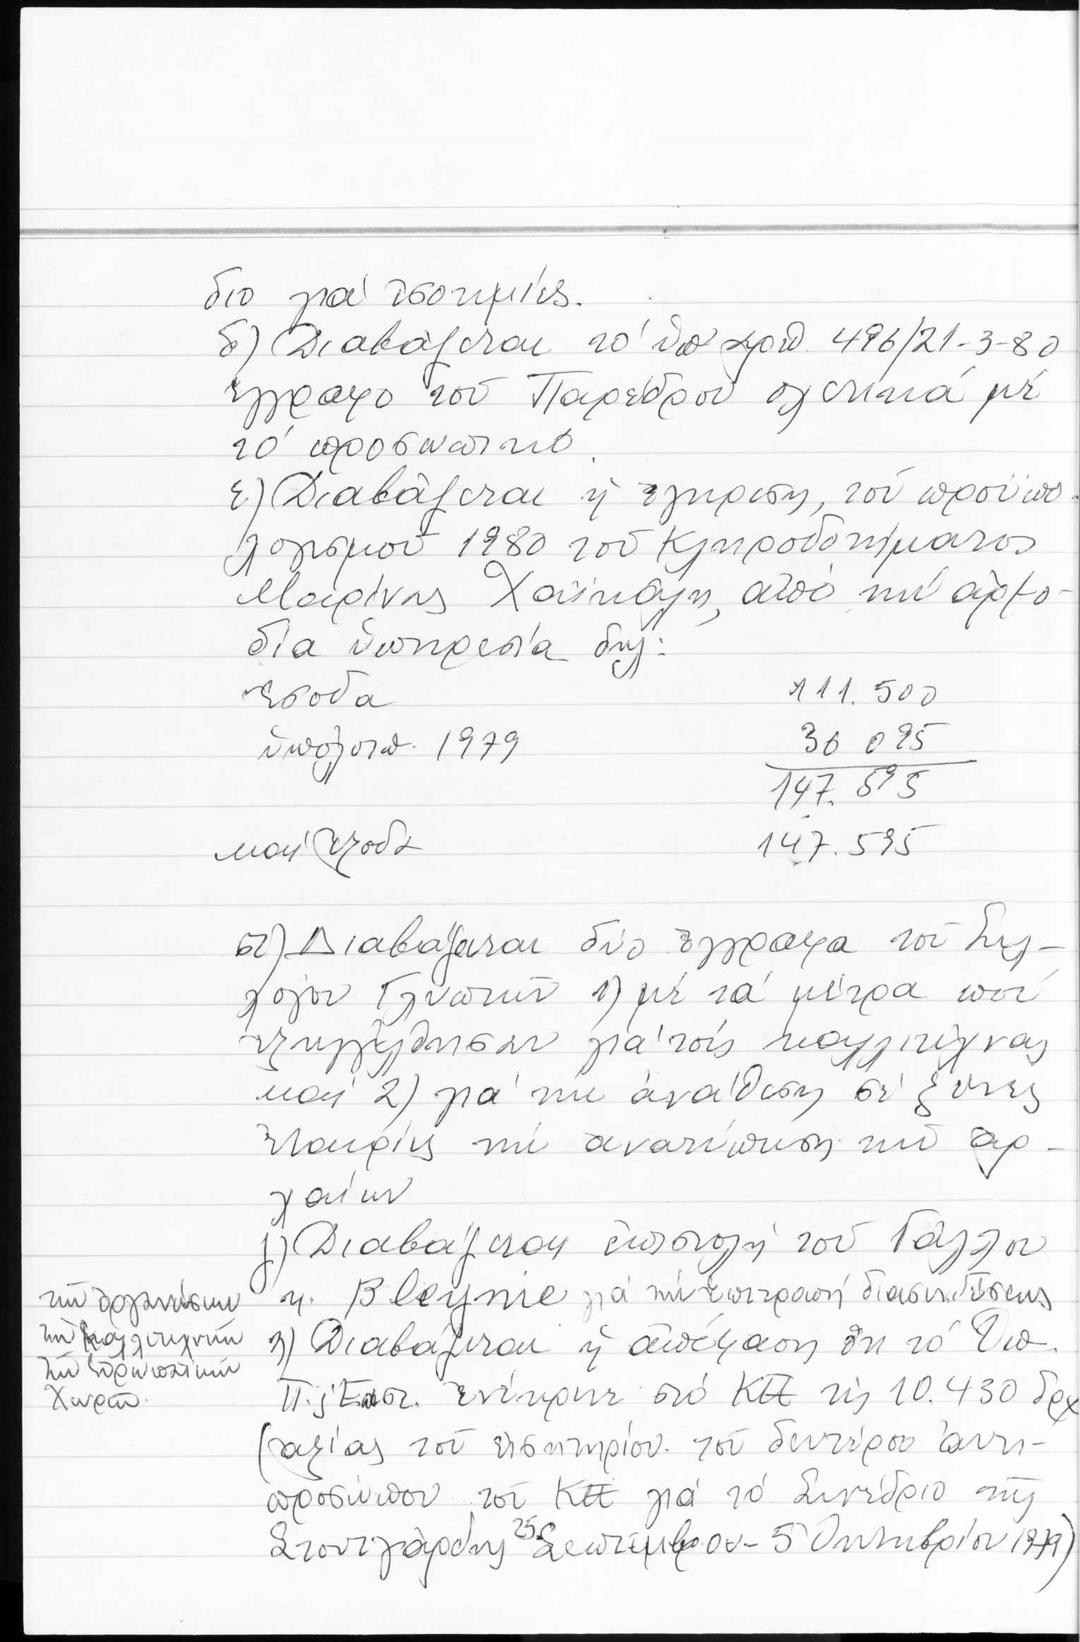 διο γιά ἰσοτιμίες.
δ) Διαβάζεται τό ὑπ' ἀριθ. 496/21-3-80
ἔγγραφο τοῦ Παρέδρου σχετικά μέ
τό προσωπικό.
ε) Διαβάζεται ἡ ἔγκριση, τοῦ προϋπο-
λογισμοῦ 1980 τοῦ Κληροδοτήματος
Μαρίνης Χαϊκάλη, ἀπό τήν ἁρμο-
δία ὑπηρεσία δηλ:
Ἔσοδα 111.500
ὑπόλοιπ. 1979 36 095
147.595
καί ἔξοδα 147.595
στ) Διαβάζεται δύο ἔγγραφα τοῦ Συλ-
λόγου Γλυπτῶν 1) μέ τά μέτρα πού
ἐξηγγέλθησαν γιά τούς καλλιτέχνας
καί 2) γιά τήν ἀνάθεση σέ ξένες
ἑταιρίες τήν ἀνατύπωση τῶν ἀρ-
χαίων
ζ) Διαβάζεται ἐπιστολή τοῦ Γάλλου
κ. Bleynie γιά τήν ἐπιτροπή διασυνδέσεως
τῶν ὀργανώσεων
τῶν καλλιτεχνῶν
τῶν Εὐρωπαϊκῶν
Χωρῶν.
η) Διαβάζεται ἡ ἀπόφαση ὅτι τό Ὑπ.
Π. & Ἐπιστ. ἐνέκρινε στό ΚΕ τίς 10.430 δρχ
(ἀξίας τοῦ εἰσιτηρίου τοῦ δευτέρου ἀντι-
προσώπου τοῦ γιά τό Συνέδριο τῆς
Στουτγάρδης 25 Σεπτεμβρίου - 5 Ὀκτωβρίου 1979)